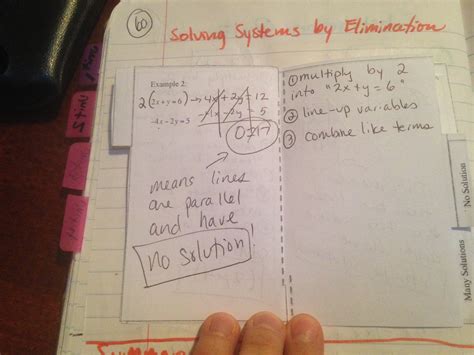 60
Solving Systems by Elimination
Example 2
2(2x+y=6) → 4x+2y=12
-4x-2y=5 -4x-2y=5
0≠17
means lines
are parallel
and have
no solution!
① multiply by 2
into "2x+y=6"
② line-up variables
③ combine like terms
No Solution
Many Solutions